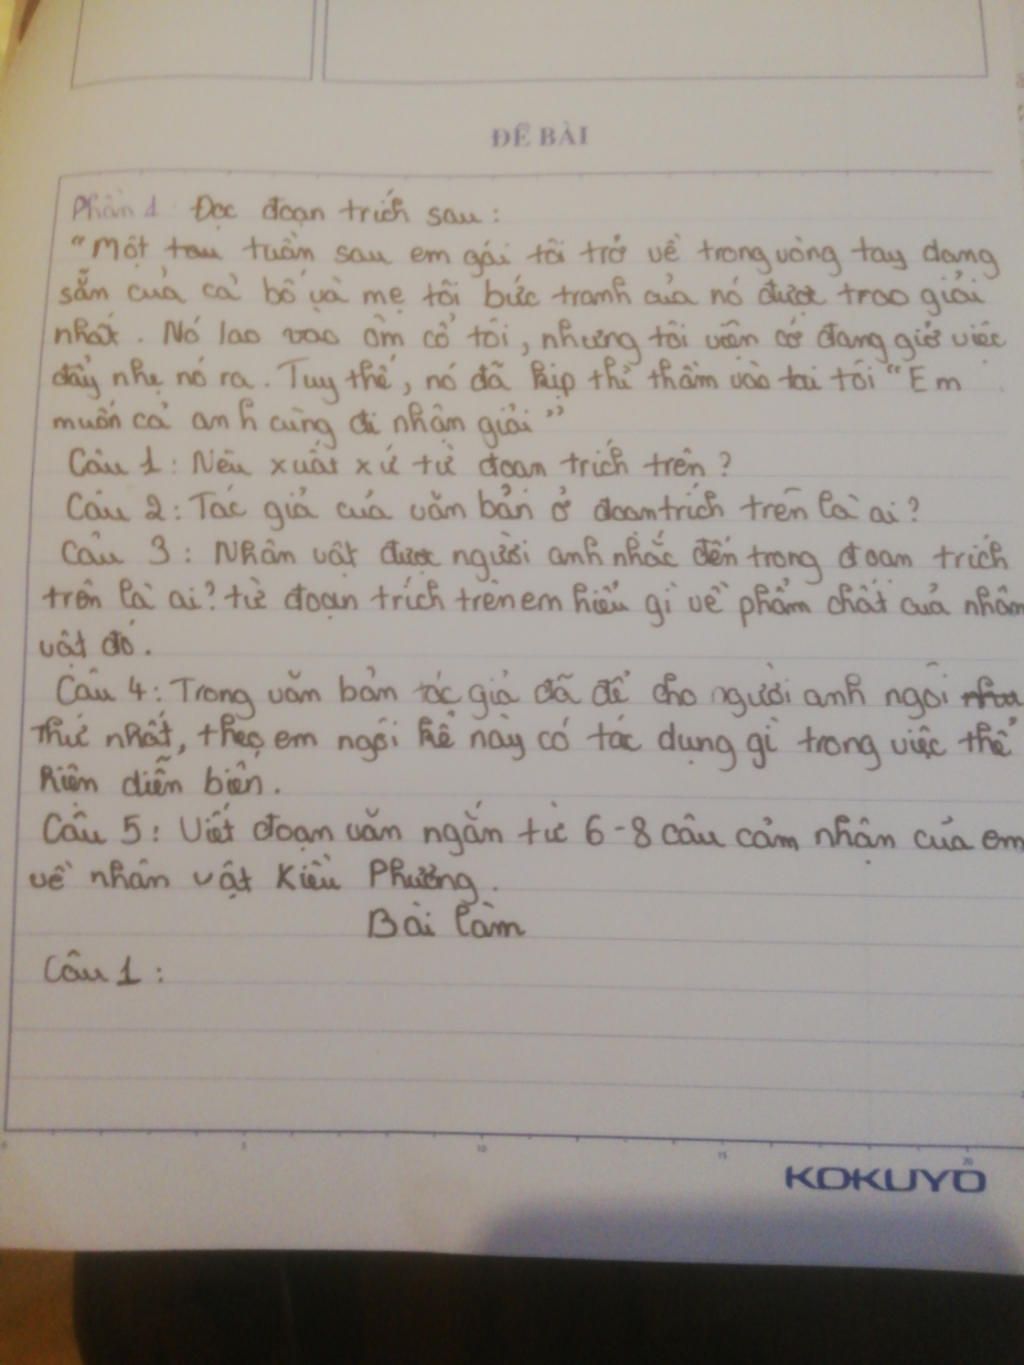 ĐỀ BÀI
Phần 1 Đọc đoạn trích sau:
"Một tau tuần sau em gái tôi trở về trong vòng tay dang
sẵn của cả bố và mẹ tôi bức tranh của nó được trao giải
nhất. Nó lao vào ôm cổ tôi, nhưng tôi viện cớ đang giở việc
đẩy nhẹ nó ra. Tuy thế, nó đã kịp thì thầm vào tai tôi "Em
muốn cả anh cùng đi nhận giải"
Câu 1: Nêu xuất xứ từ đoạn trích trên?
Câu 2: Tác giả của văn bản ở đoạn trích trên là ai?
Câu 3: Nhân vật được người anh nhắc đến trong đoạn trích
trên là ai? từ đoạn trích trên em hiểu gì về phẩm chất của nhân
vật đó.
Câu 4: Trong văn bản tác giả đã để cho người anh ngôi
thứ nhất, theo em ngôi kể này có tác dụng gì trong việc thể
hiện diễn biến.
Câu 5: Viết đoạn văn ngắn từ 6-8 câu cảm nhận của em
về nhân vật Kiều Phương.
Bài làm
Câu 1:
0 5 10 15 20
KOKUYO